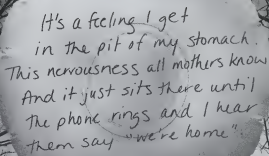 It's a feeling I get
in the pit of my stomach.
This nervousness all mothers know
And it just sits there until
the phone rings and I hear
them say "we're home"